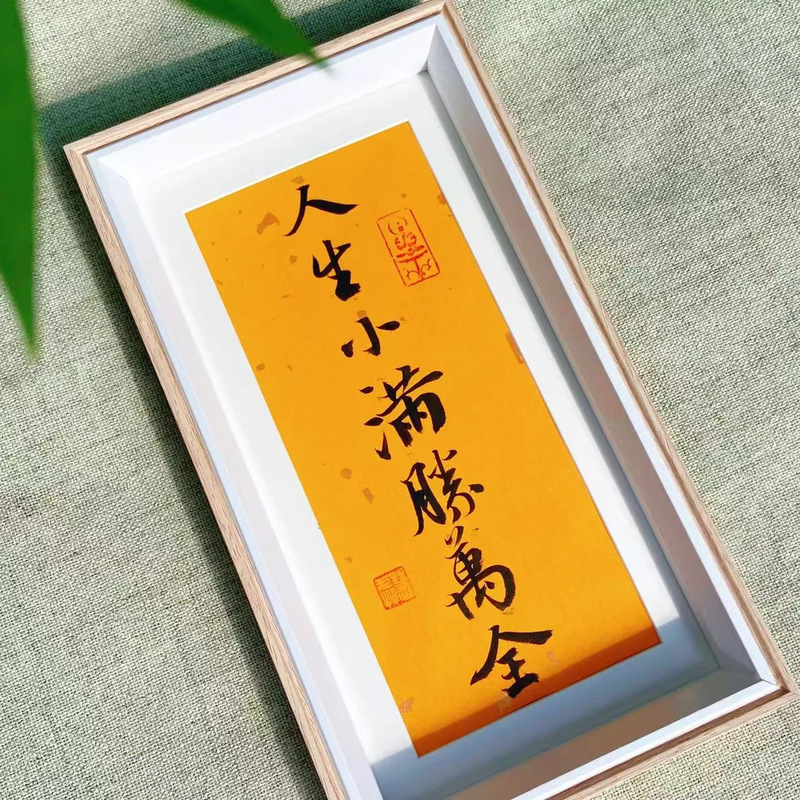 人生小满勝萬全